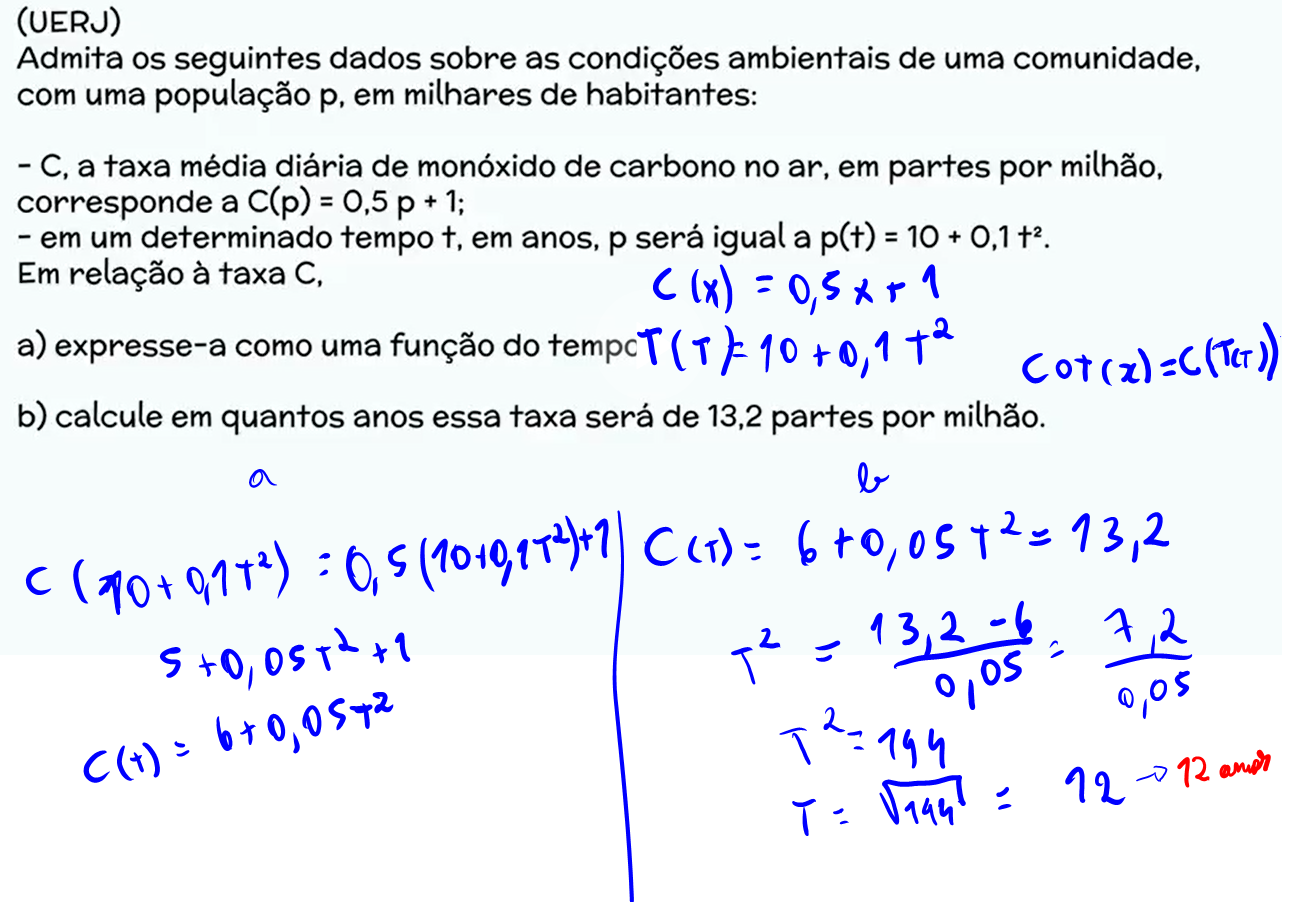 (UERJ)
Admita os seguintes dados sobre as condições ambientais de uma comunidade,
com uma população p, em milhares de habitantes:
- C, a taxa média diária de monóxido de carbono no ar, em partes por milhão,
corresponde a C(p) = 0,5 p + 1;
- em um determinado tempo t, em anos, p será igual a p(t) = 10 + 0,1 t².
Em relação à taxa C,
C(x) = 0,5x + 1
a) expresse-a como uma função do tempo
T(T) = 10 + 0,1 t²
CoT(x) = C(T(T))
b) calcule em quantos anos essa taxa será de 13,2 partes por milhão.
a
C(10 + 0,1t²) = 0,5(10+0,1T²)+1
5 + 0,05T² + 1
C(t) = 6 + 0,05T²
b
C(T) = 6 + 0,05T² = 13,2
T² = (13,2 - 6)/0,05 = 7,2/0,05
T² = 144
T = √144 = 12 → 12 anos